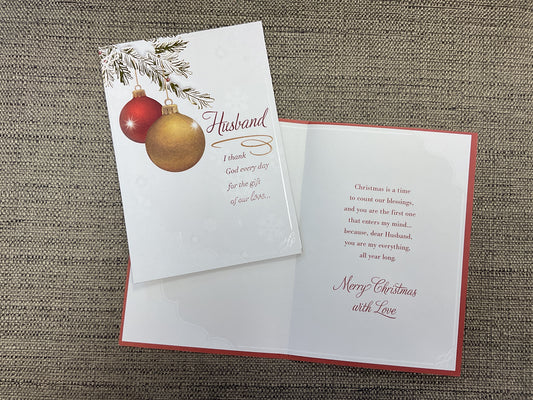 Husband
I thank
God every day
for the gift
of our love...
Christmas is a time
to count our blessings,
and you are the first one
that enters my mind...
because, dear Husband,
you are my everything,
all year long.
Merry Christmas
with Love